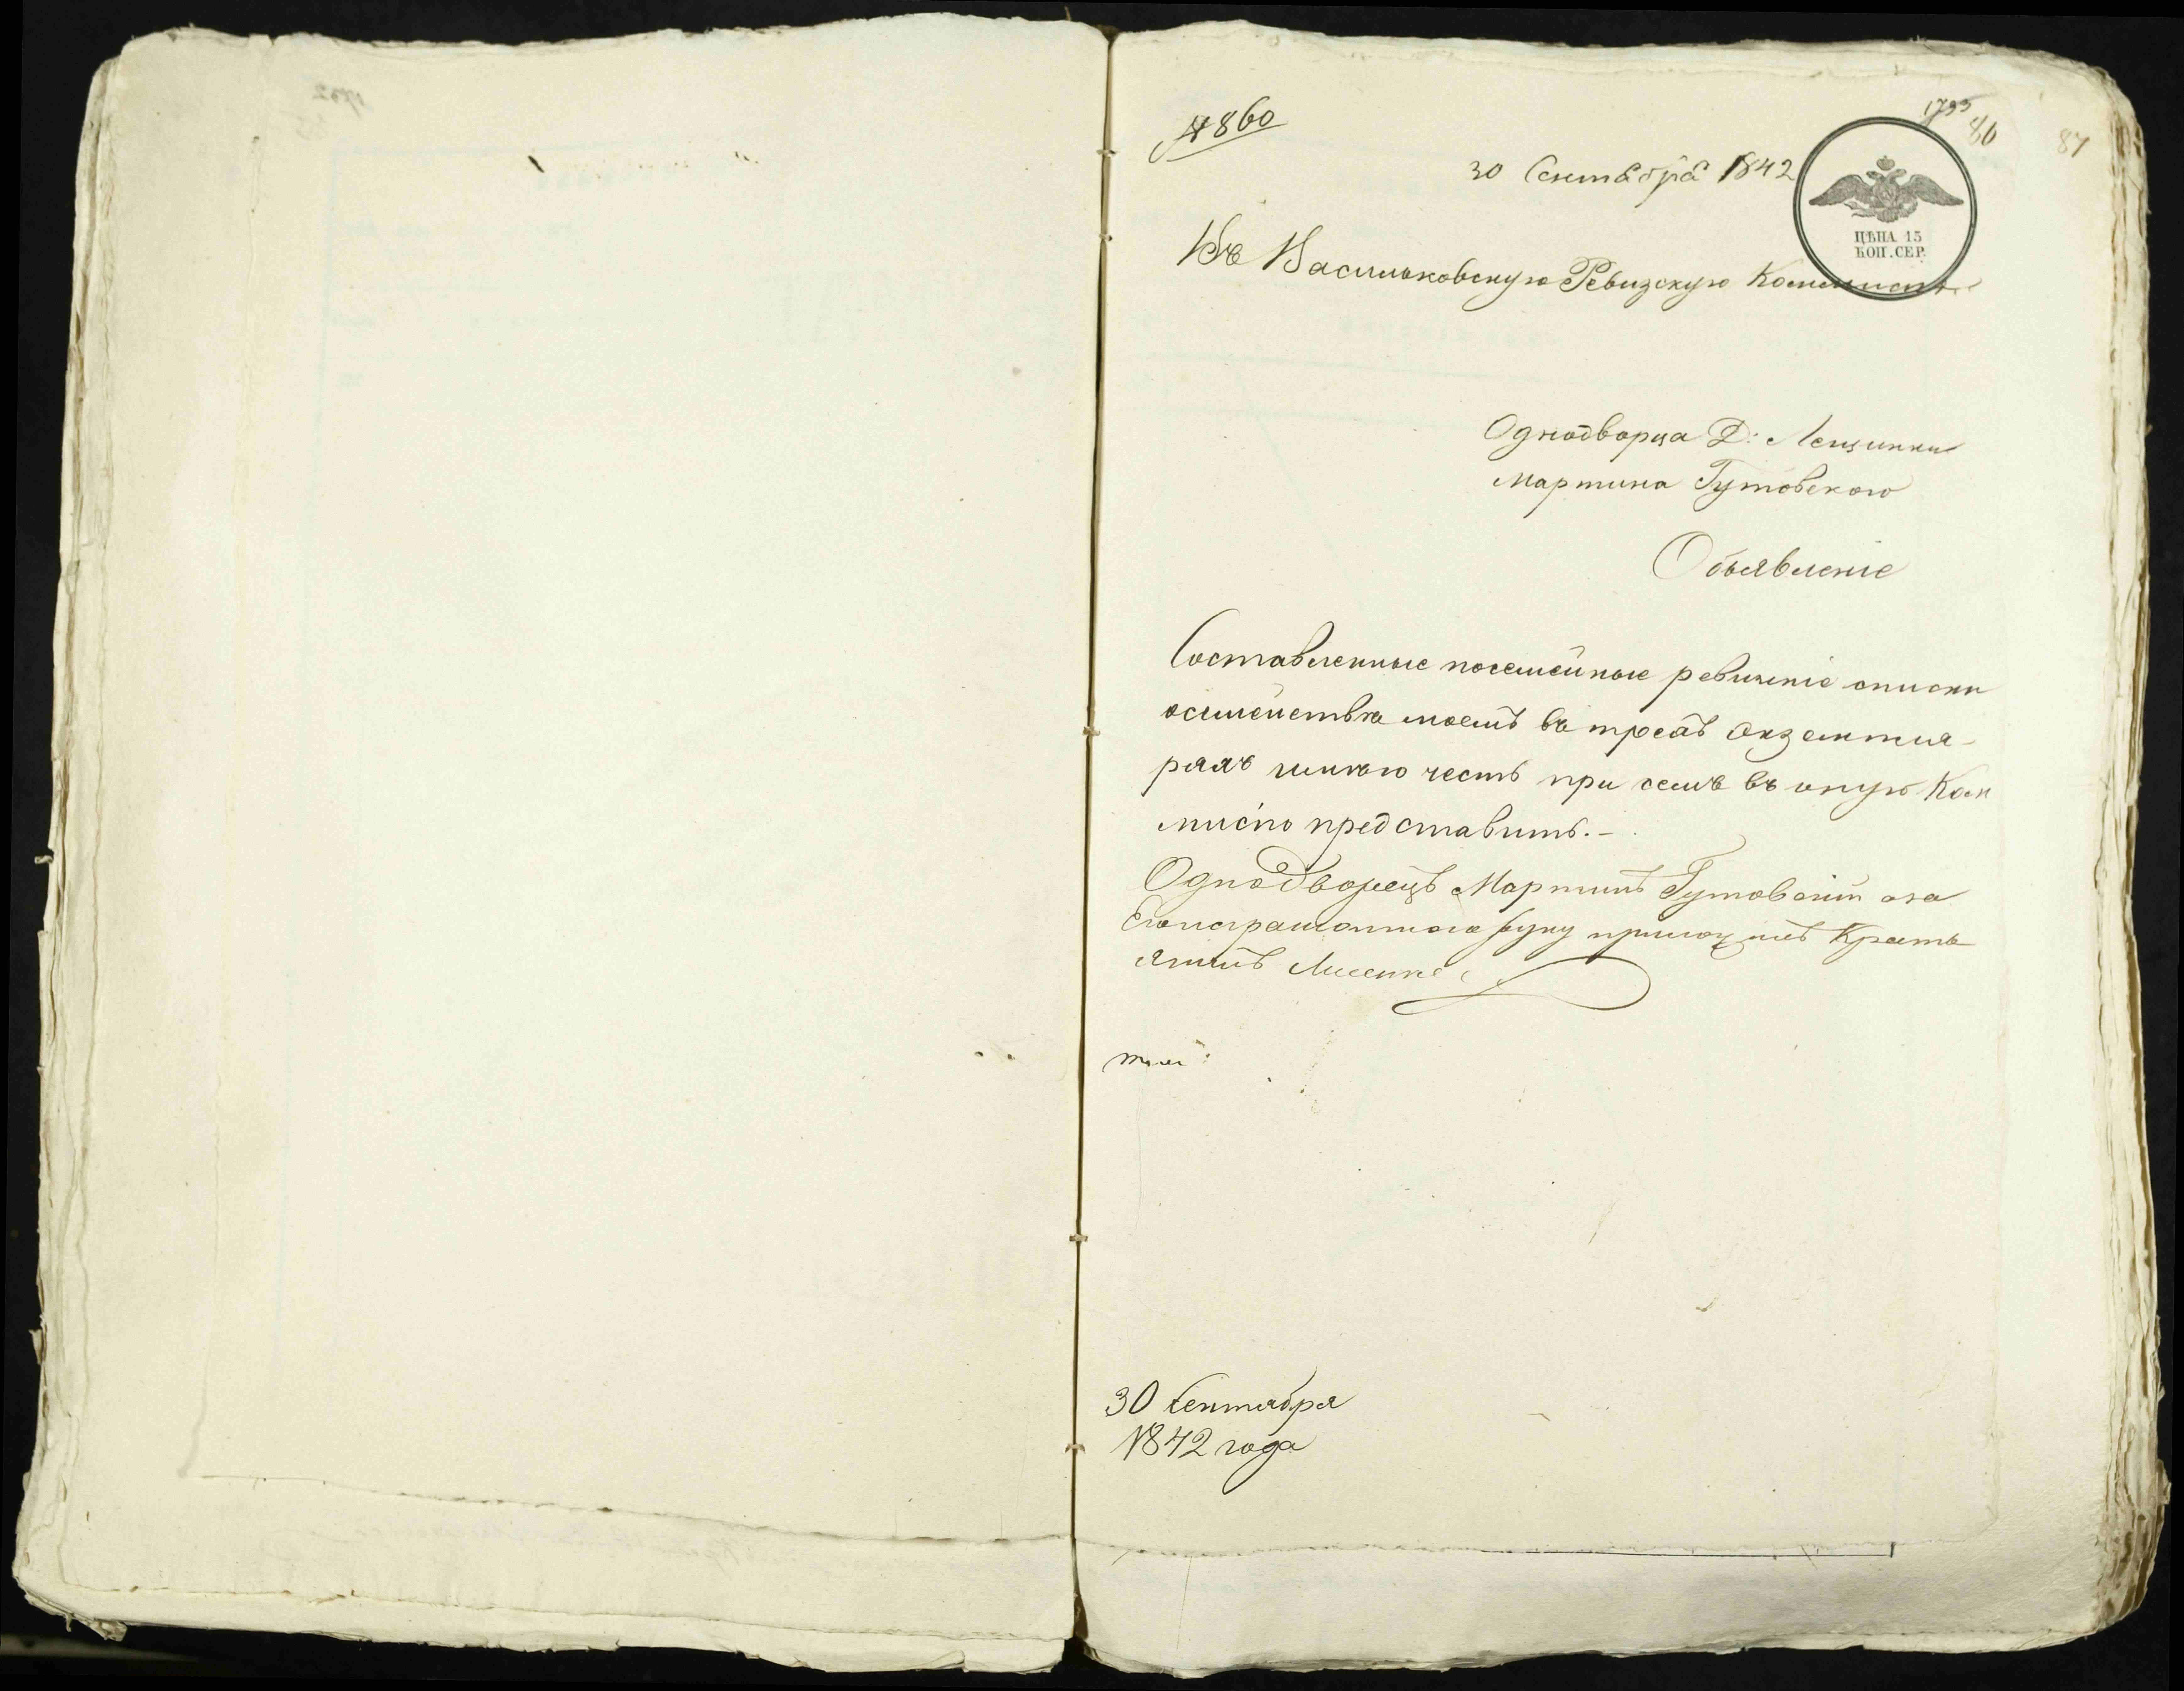 № 860
1793
86
87
30 Сентября 1842
ЦѢНА 15
КОП. СЕР.
Въ Васильковскую Ревизскую Коммисію
Однодворца Д: Лещинки
Мартина Гутовского
Объявленіе
Составленные посемейные ревизкіе списки
о семействѣ моемъ въ трехъ экземпля-
рахъ имѣю честь при семъ въ оную Ком
мисію представить.-
Однодворецъ Мартинъ Гутовскій а за
Его неграмотного руку приложилъ
30 Сентября
1842 года